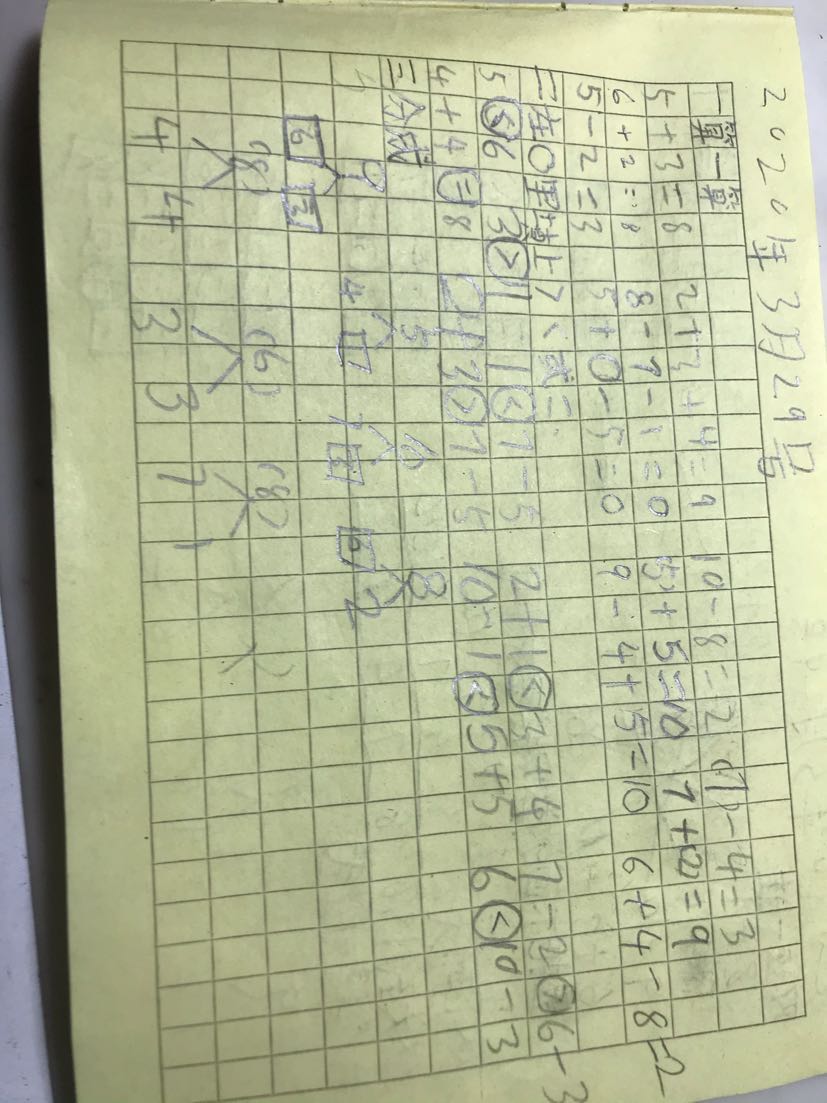 2020年3月29号
一算一算
5+3=8 2+3+4=9 10-8=2 (7)-4=3
6+2=8 8-7-1=0 (5)+5=10 7+(2)=9
5-2=3 5+0-5=0 9-4+5=10 6+4-8=2
二在○里填上>、<或=
5<6 3>1 1<7-5 2+1<3+4 7-2>6-3
4+4=8 2+3>7-5 10-1<5+5 6<10-3
三分成
9 5 10 8
6 3 4 1 7 3 6 2
(8) (6) (8)
4 4 3 3 7 1